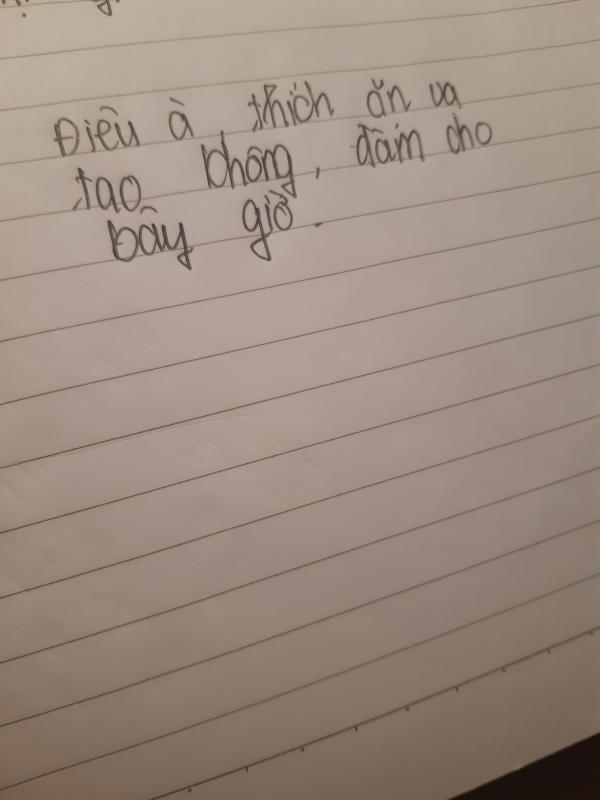 Điêu à thích ăn va
tao không, đấm cho
bây giờ.